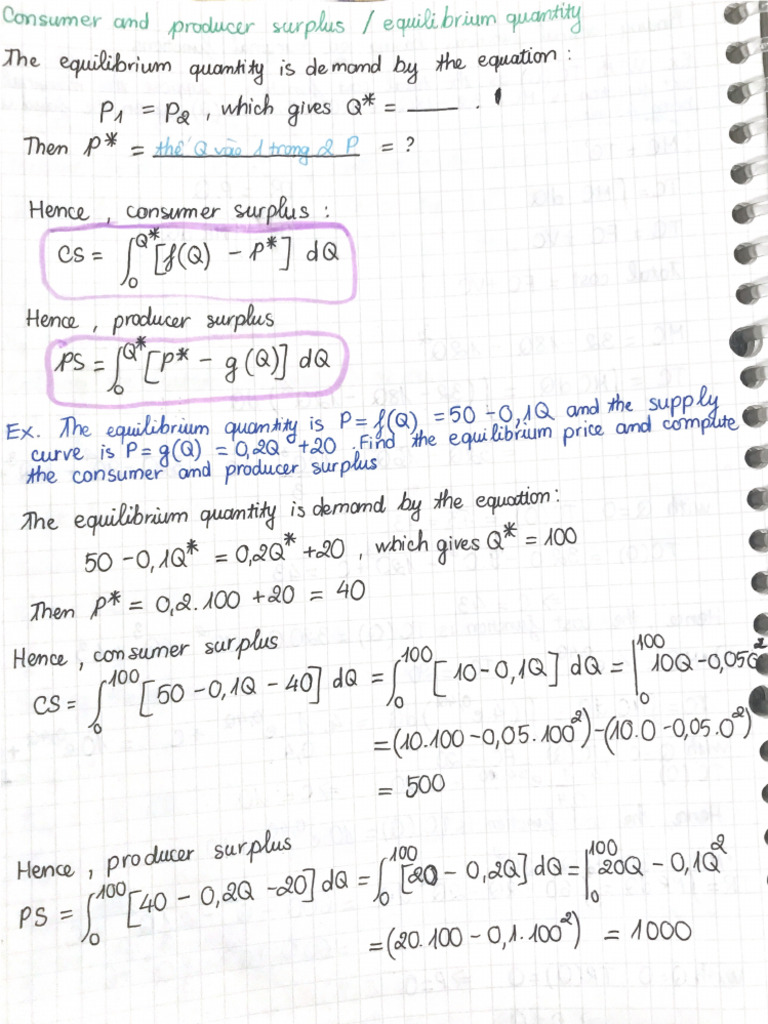 Consumer and producer surplus / equilibrium quantity
The equilibrium quantity is demand by the equation :
P1 = P2 , which gives Q* = ____ .
Then P* = thế Q vào 1 trong 2 P = ?
Hence , consumer surplus :
CS = ∫₀^Q* [f(Q) - P*] dQ
Hence , producer surplus
PS = ∫₀^Q* [P* - g(Q)] dQ
Ex. The equilibrium quantity is P = f(Q) = 50 - 0,1Q and the supply
curve is P = g(Q) = 0,2Q + 20 . Find the equilibrium price and compute
the consumer and producer surplus
The equilibrium quantity is demand by the equation:
50 - 0,1Q* = 0,2Q* + 20 , which gives Q* = 100
Then P* = 0,2.100 + 20 = 40
Hence , consumer surplus
CS = ∫₀^100 [50 - 0,1Q - 40] dQ = ∫₀^100 [10 - 0,1Q] dQ = |₀^100 10Q - 0,05Q²
= (10.100 - 0,05.100²) - (10.0 - 0,05.0²)
= 500
Hence , producer surplus
PS = ∫₀^100 [40 - 0,2Q - 20] dQ = ∫₀^100 [20 - 0,2Q] dQ = |₀^100 20Q - 0,1Q²
= (20.100 - 0,1.100²) = 1000